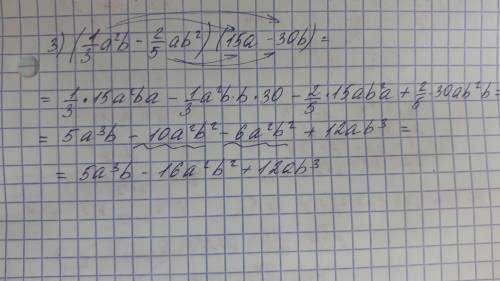 3) (1/3 a²b - 2/5 ab²)(15a - 30b) =
= 1/3 · 15a²ba - 1/3 a²b·b·30 - 2/5 · 15ab²a + 2/5 · 30ab²b =
= 5a³b - 10a²b² - 6a²b² + 12ab³ =
= 5a³b - 16a²b² + 12ab³